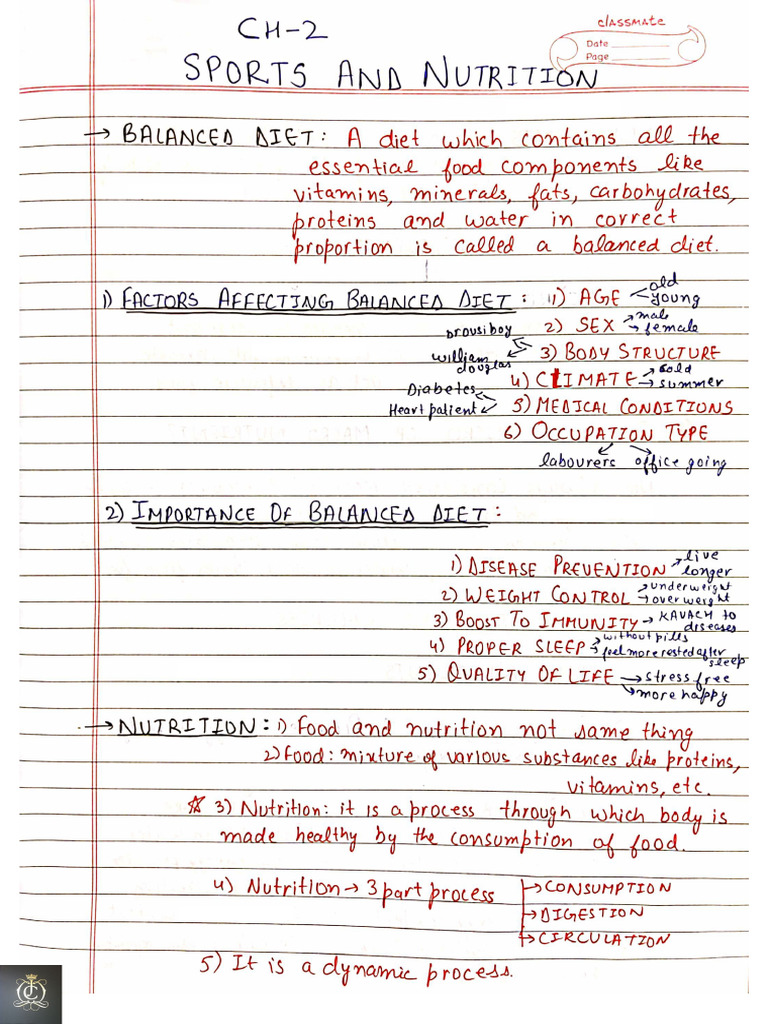 CH-2
classmate
Date
Page
SPORTS AND NUTRITION
→ BALANCED DIET: A diet which contains all the
essential food components like
vitamins, minerals, fats, carbohydrates,
proteins and water in correct
proportion is called a balanced diet.
1) FACTORS AFFECTING BALANCED DIET: 1) AGE old
young
2) SEX → male
→ female
brousiboy
3) BODY STRUCTURE
william
douglas
4) CLIMATE → cold
→ summer
Diabetes
Heart patient
5) MEDICAL CONDITIONS
6) OCCUPATION TYPE
labourers office going
2) IMPORTANCE OF BALANCED DIET:
1) DISEASE PREVENTION → live
longer
2) WEIGHT CONTROL → underweight
→ overweight
3) BOOST TO IMMUNITY → KAVACH to
diseases
4) PROPER SLEEP → without pills
→ feel more rested after
sleep
5) QUALITY OF LIFE → stress free
→ more happy
→ NUTRITION: 1) Food and nutrition not same thing
2) Food: mixture of various substances like proteins,
vitamins, etc.
☆ 3) Nutrition: it is a process through which body is
made healthy by the consumption of food.
4) Nutrition → 3 part process → CONSUMPTION
→ DIGESTION
→ CIRCULATION
5) It is a dynamic process.